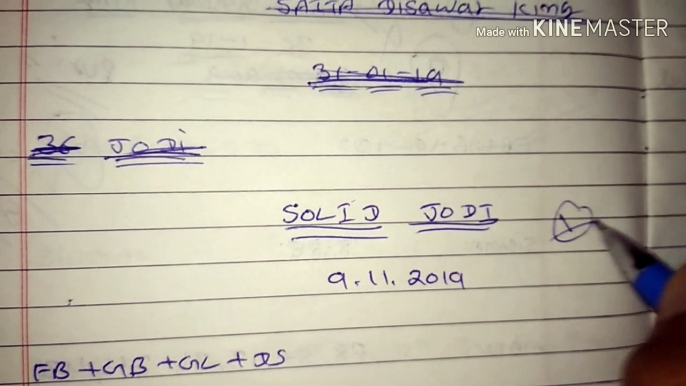 SATTA DISAWAR KING
Made with KINEMASTER
31-01-19
36 JODI
SOLID JODI
9.11.2019
FB+GB+GL+DS